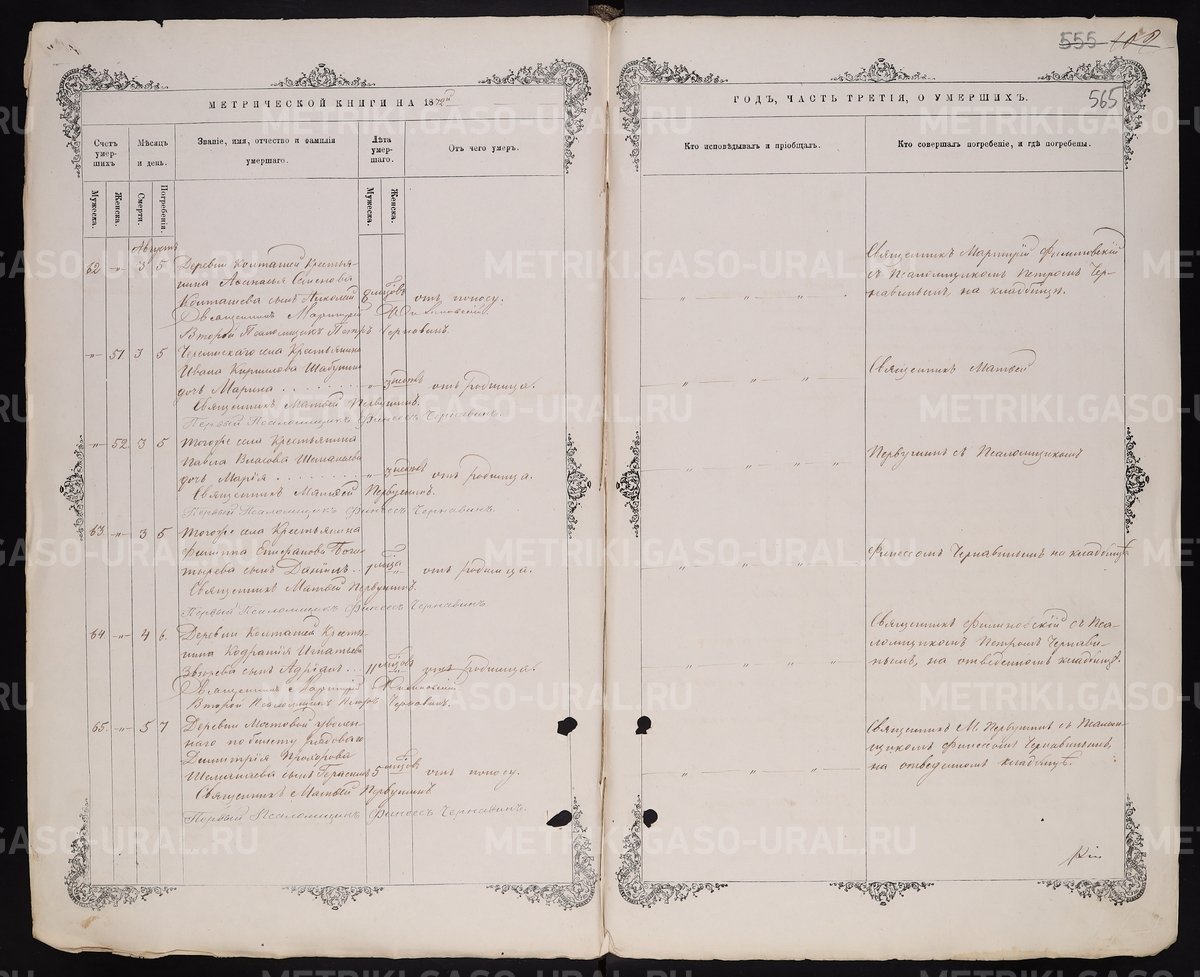 555 158
565
МЕТРИЧЕСКОЙ КНИГИ НА 1872й
ГОДЪ, ЧАСТЬ ТРЕТІЯ, О УМЕРШИХЪ.
Счетъ умерших.
Мѣсяцъ и день.
Званіе, имя, отчество и фамилія умершаго.
Лѣта умершаго.
Отъ чего умеръ.
Кто исповѣдывалъ и пріобщалъ.
Кто совершалъ погребеніе, и гдѣ погребены.
Мужеска.
Женска.
Смерти.
Погребенія.
Мужеска.
Женска.
Августъ
62 -„- 3 5 Деревни Колташей Крестья-
нина Аѳанасья Семенова
Колташева сынъ Николай 8 мѣсяцовъ отъ поносу.
Священникъ Мартирій Филиповскій.
Второй Псаломщикъ Петръ Чернавинъ.
Священникъ Мартирій Филиповскій
съ Псаломщикомъ Петромъ Чер-
навинымъ, на кладбищѣ.
-„- 51 3 5 Черемискаго села Крестьянина
Ивана Кирилова
дочь Марина . . . „ 3 отъ родимца.
Священникъ Матвей Первушинъ.
Первый Псаломщикъ Финеесъ Чернавинъ.
Священникъ Матвей
-„- 52 3 5 Тогоже села Крестьянина
Павла Власова
дочь Марія . . . „ 3 отъ родимца.
Священникъ Матвей Первушинъ.
Первый Псаломщикъ Финеесъ Чернавинъ.
Первушинъ съ Псаломщикомъ
63 -„- 3 5 Тогоже села Крестьянина
Филиппа Епифанова Бога-
тырева сынъ Даніилъ . . 1 мѣсяца отъ родимца.
Священникъ Матвей Первушинъ.
Первый Псаломщикъ Финеесъ Чернавинъ.
Финеесомъ Чернавинымъ на кладбищѣ
64 -„- 4 6 Деревни Колташей Кресть-
нина Кодратія Игнатьева
Зверева сынъ Адріанъ . . 11 мѣсяцовъ отъ родимца.
Священникъ Мартирій Филиповскій
Второй Псаломщикъ Петръ Чернавинъ.
Священникъ Филиповскій съ Пса-
ломщикомъ Петромъ Чернави-
нымъ, на отведенномъ кладбищѣ.
65 -„- 5 7 Деревни Мостовой уволен-
наго по билету рядоваго
Димитрія Прохорова
сынъ Герасимъ 5 мѣсяцовъ отъ поносу.
Священникъ Матвей Первушинъ
Первый Псаломщикъ Финеесъ Чернавинъ.
Священникъ М. Первушинъ съ Псалом-
щикомъ Финеесомъ Чернавинымъ,
на отведенномъ кладбищѣ.
METRIKI.GASO-URAL.RU